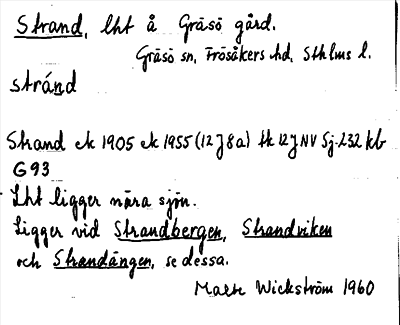 Strand, lht å Gräsö gård.
Gräsö sn, Frösåkers hd, Sthlms l.
stránd
Strand ek 1905 ek 1955 (12 J 8 a) tk 12 J NV Sj. 232 kb
G 93
Lht ligger nära sjön.
Ligger vid Strandbergen, Strandviken
och Strandängen, se dessa.
Wickström 1960